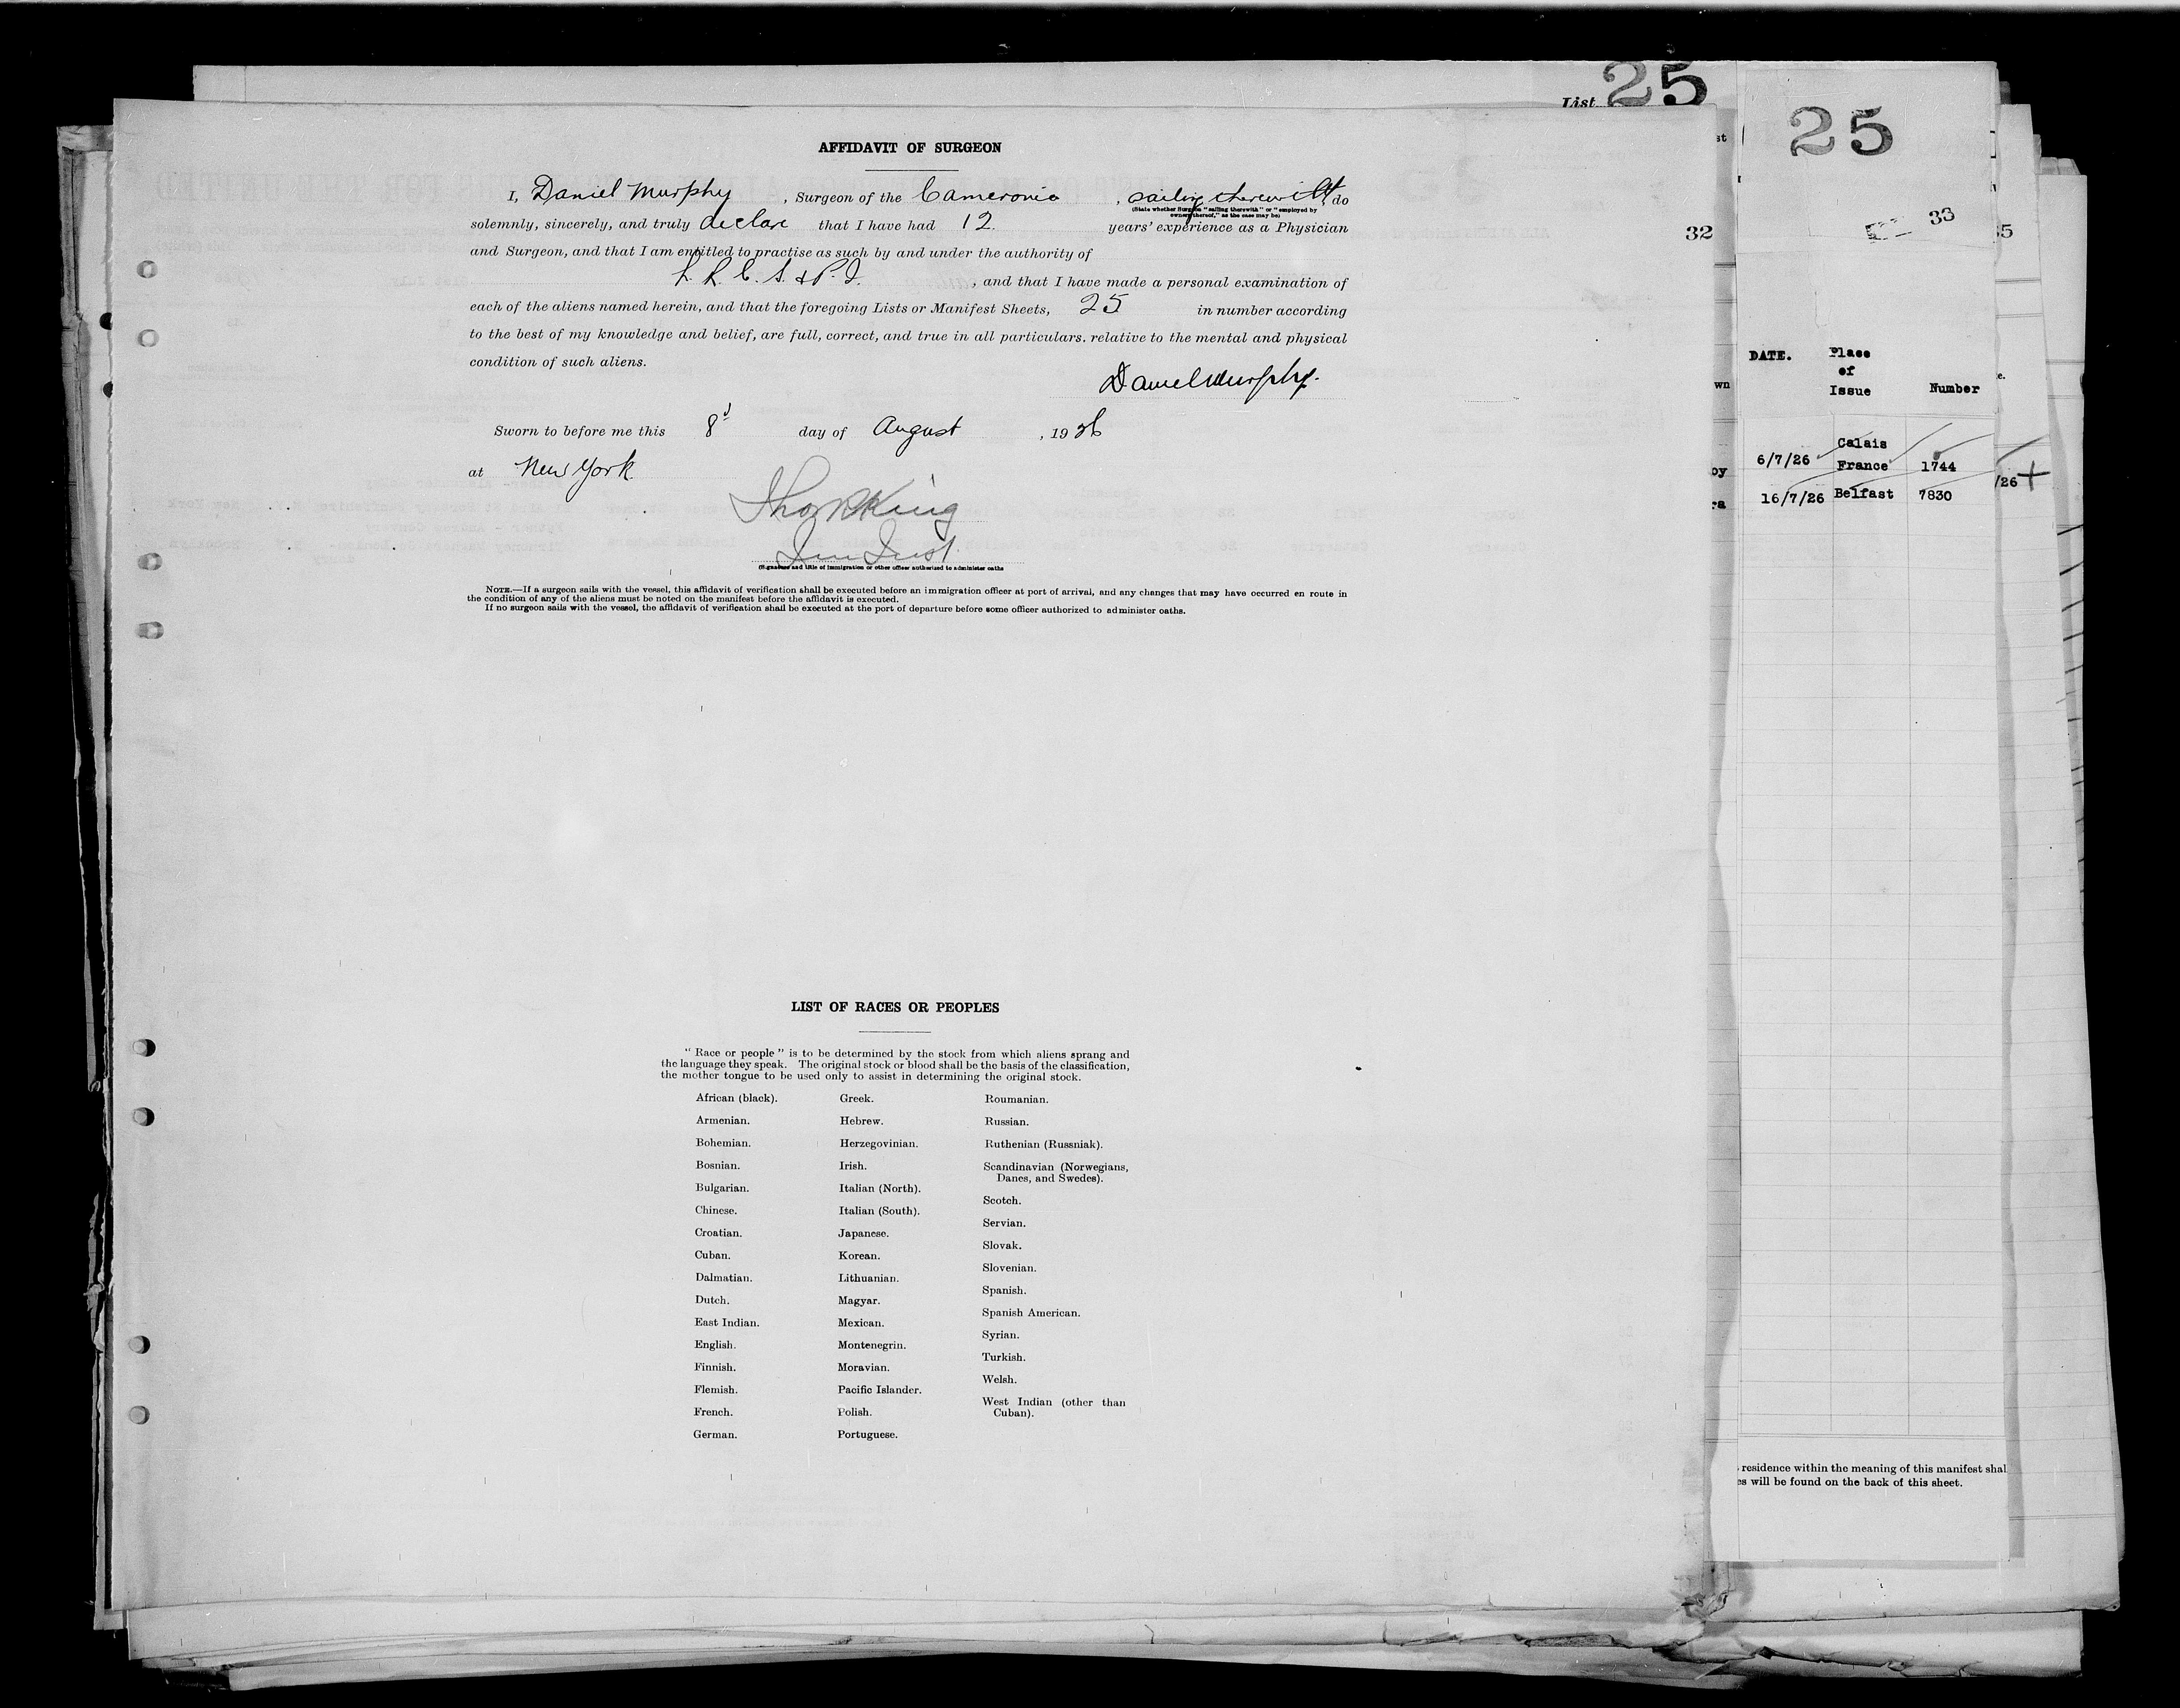 List 25
25
33
32
35
AFFIDAVIT OF SURGEON
I, Daniel Murphy, Surgeon of the Cameronia, sailing therewith, do
(State whether Surgeon "sailing therewith" or "employed by
owners thereof," as the case may be)
solemnly, sincerely, and truly declare that I have had 12 years' experience as a Physician
and Surgeon, and that I am entitled to practise as such by and under the authority of
L. R. C. S. & P. I., and that I have made a personal examination of
each of the aliens named herein, and that the foregoing Lists or Manifest Sheets, 25 in number according
to the best of my knowledge and belief, are full, correct, and true in all particulars. relative to the mental and physical
condition of such aliens.
Daniel Murphy.
Sworn to before me this 8 day of August, 1926
at New York
(Signature and title of immigration or other officer authorized to administer oaths
NOTE.—If a surgeon sails with the vessel, this affidavit of verification shall be executed before an immigration officer at port of arrival, and any changes that may have occurred en route in
the condition of any of the aliens must be noted on the manifest before the affidavit is executed.
If no surgeon sails with the vessel, the affidavit of verification shall be executed at the port of departure before some officer authorized to administer oaths.
LIST OF RACES OR PEOPLES
"Race or people" is to be determined by the stock from which aliens sprang and
the language they speak. The original stock or blood shall be the basis of the classification,
the mother tongue to be used only to assist in determining the original stock.
African (black).
Armenian.
Bohemian.
Bosnian.
Bulgarian.
Chinese.
Croatian.
Cuban.
Dalmatian.
Dutch.
East Indian.
English.
Finnish.
Flemish.
French.
German.
Greek.
Hebrew.
Herzegovinian.
Irish.
Italian (North).
Italian (South).
Japanese.
Korean.
Lithuanian.
Magyar.
Mexican.
Montenegrin.
Moravian.
Pacific Islander.
Polish.
Portuguese.
Roumanian.
Russian.
Ruthenian (Russniak).
Scandinavian (Norwegians,
Danes, and Swedes).
Scotch.
Servian.
Slovak.
Slovenian.
Spanish.
Spanish American.
Syrian.
Turkish.
Welsh.
West Indian (other than
Cuban).
DATE. Place
of
Issue Number
Calais
6/7/26 France 1744
16/7/26 Belfast 7830
/26
residence within the meaning of this manifest shal
es will be found on the back of this sheet.